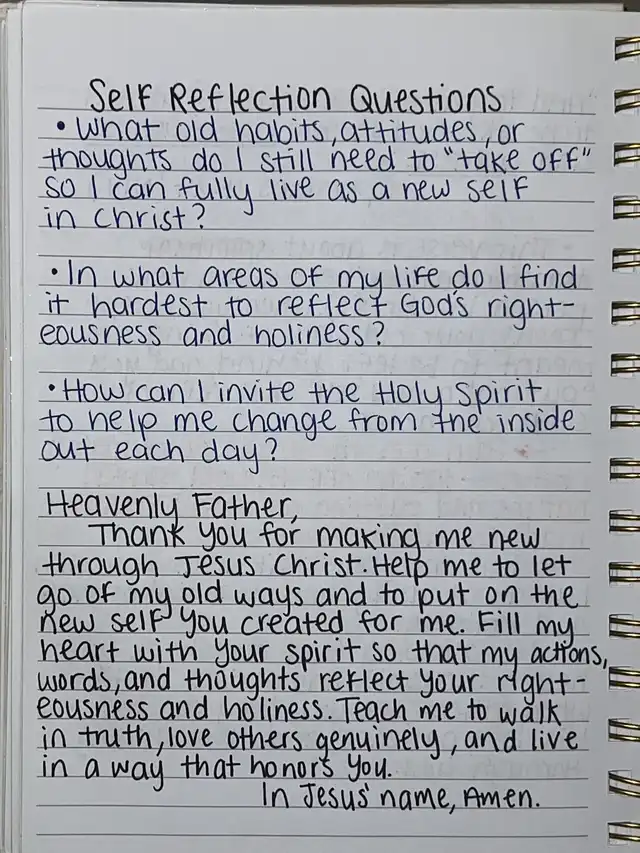 Self Reflection Questions
• What old habits, attitudes, or
thoughts do I still need to "take off"
so I can fully live as a new self
in Christ?
• In what areas of my life do I find
it hardest to reflect God's right-
eousness and holiness?
• How can I invite the Holy Spirit
to help me change from the inside
out each day?
Heavenly Father,
Thank You for making me new
through Jesus Christ. Help me to let
go of my old ways and to put on the
new self You created for me. Fill my
heart with Your spirit so that my actions,
words, and thoughts reflect Your right-
eousness and holiness. Teach me to walk
in truth, love others genuinely, and live
in a way that honors You.
In Jesus' name, Amen.